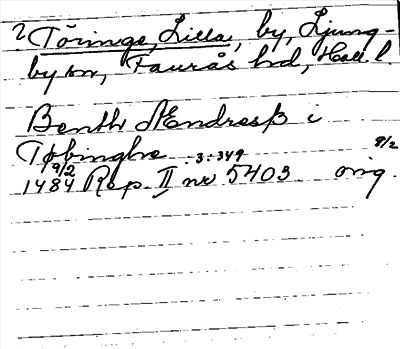 ? Töringe, Lilla, by, Ljung-
by sn, Faurås hd, Hall. l.
Benth AEndresß i
Tøbinghe . 3:349
9/2 8/2
1484 Rep. II nr 5403 orig.